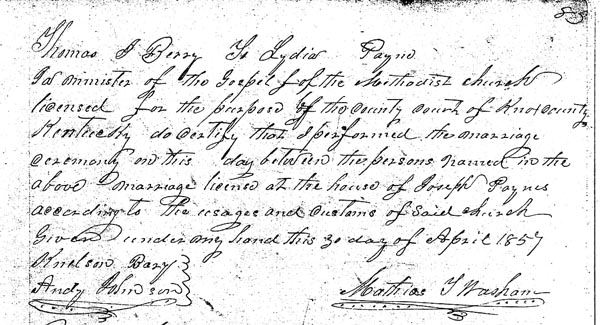 83
Thomas J Berry To Lydia Payne
I a minister of the Gospel of the Methodist church
licensed for the purpose by the county court of Knox county
Kentucky do certify that I performed the marriage
ceremony on this day between the persons named in the
above marriage license at the house of Joseph Paynes
according to the usages and customs of said church
Given under my hand this 30 day of April 1857
Knelson Bary
Andy Johnson Mathias T Washam